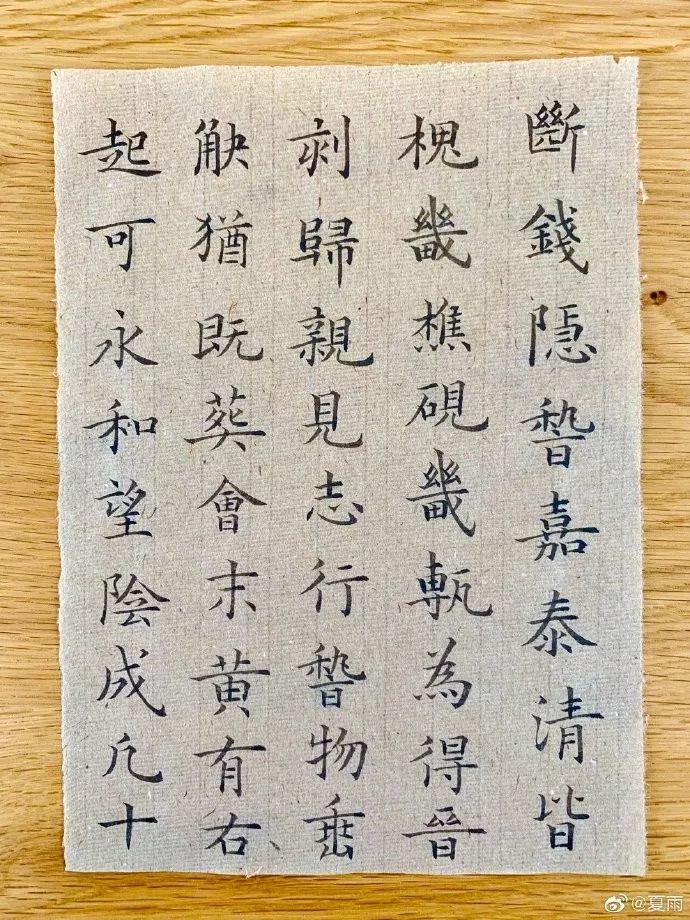 斷錢隱嵆嘉泰清皆
槐畿樵硯畿甎為得晉
剥歸親見志行嵆物垂
觖猶既葬會末黄有右
起可永和望陰成凢十
@夏雨